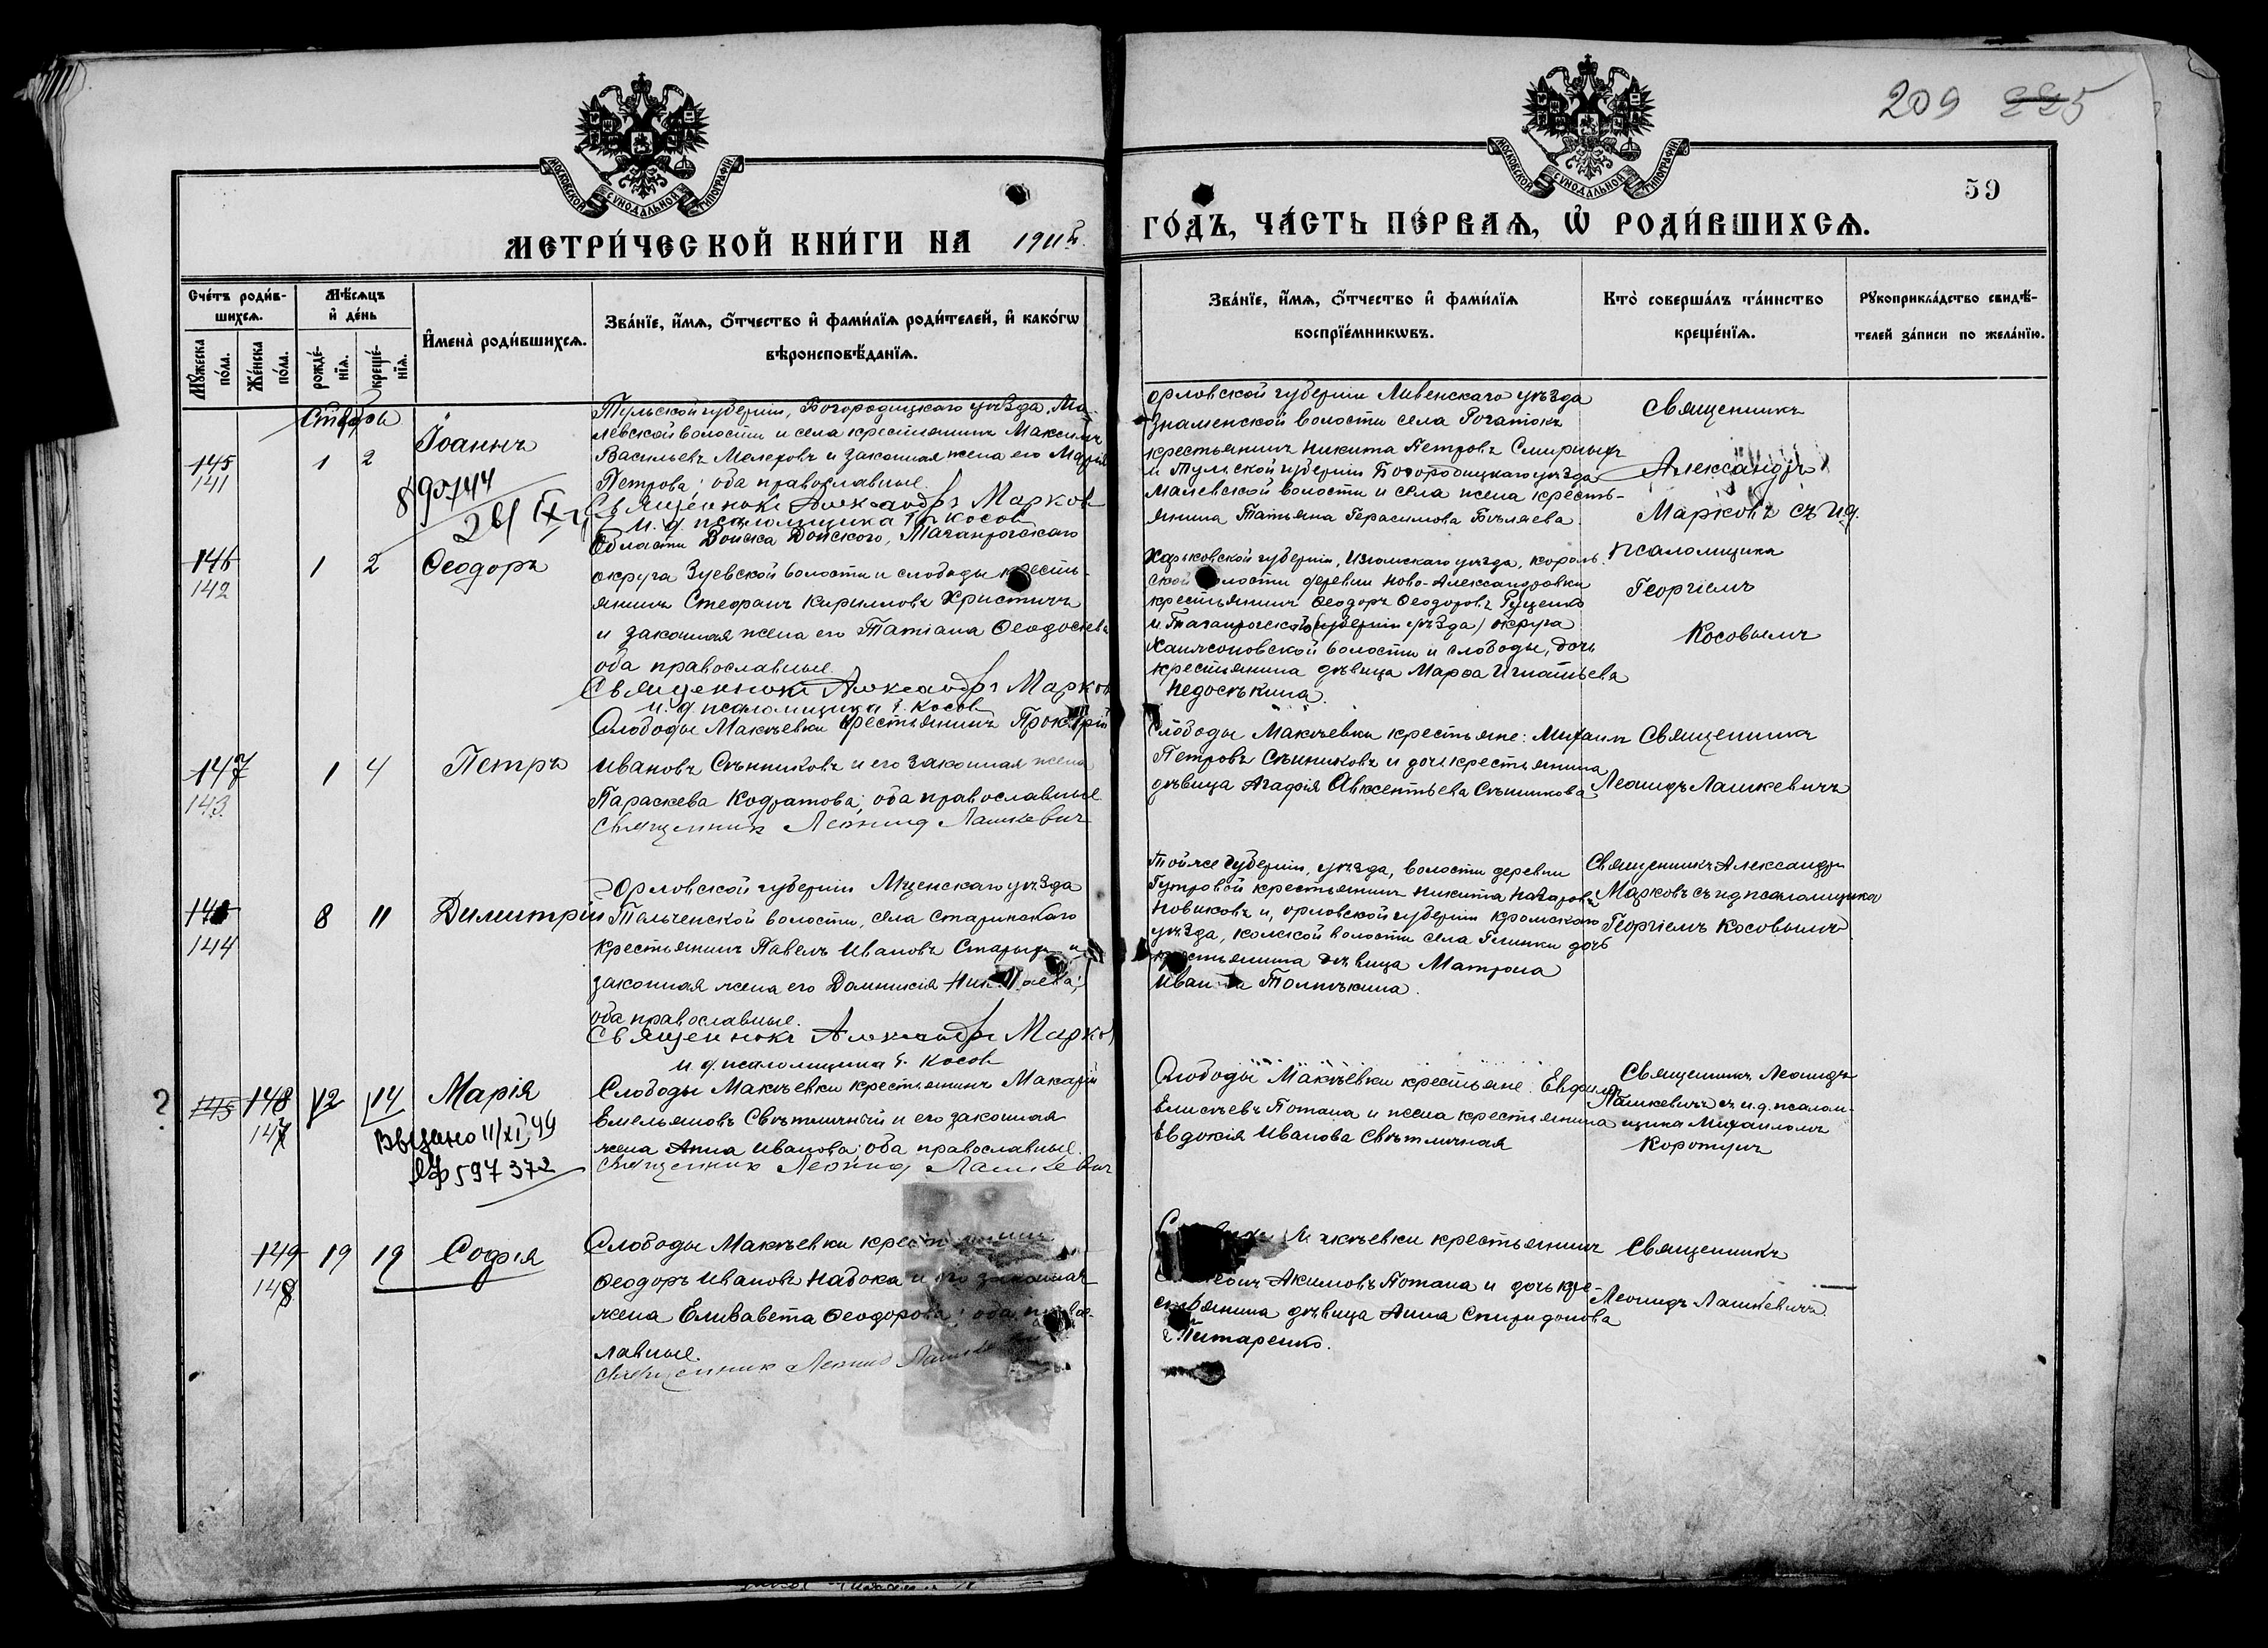 209 225
59
МОСКОВСКОЙ СѴНОДАЛЬНОЙ ТИПОГРАФІИ
МОСКОВСКОЙ СѴНОДАЛЬНОЙ ТИПОГРАФІИ
МЕТРИ́ЧЕСКОЙ КНИ́ГИ НА 1911й
ГО́ДЪ, ЧА́СТЬ ПЕ́РВАѦ, Ѡ҆ РОДИ́ВШИХСѦ.
Сче́тъ роди́в-
шихсѧ.
Мꙋ́жеска по́ла.
Же́нска по́ла.
Мѣ́сѧцъ
и҆ де́нь
рожде́-
нїѧ.
креще́-
нїѧ.
И҆мена̀ роди́вшихсѧ.
Зва́нїе, и҆́мѧ, ѻ҆́тчество и҆ фами́лїѧ роди́телей, и҆ како́гѡ
вѣроисповѣ́данїѧ.
Зва́нїе, и҆́мѧ, ѻ҆́тчество и҆ фами́лїѧ
воспрїе́мникѡвъ.
Кто̀ соверша́лъ та́инство
креще́нїѧ.
Рꙋкоприкла́дство свидѣ́-
телей за́писи по жела́нїю.
145
141
1 2
Іоаннъ
Тульской губерніи, Богородицкаго уѣзда, Ма-
левской волости и села крестьянинъ Максимъ
Васильевъ Мелеховъ и законная жена его Марія
Петрова; оба православные.
Священникъ Александръ Марков
И. д. псаломщика Г. Косов
орловской губерніи Ливенскаго уѣзда
Знаменской волости села Рогатокъ
крестьянинъ Никита Петровъ Смирныхъ
и Тульской губерніи Богородицкаго уѣзда
Малевской волости и села жена кресть-
янина Татьяна Герасимова Бѣляева.
Священникъ
Александръ
Марковъ съ и.д.
псаломщика
Георгіемъ
Косовымъ
146
142
1 2
Ѳеодоръ
Области Войска Донского, Таганрогскаго
округа Зуевской волости и слободы кресть-
янинъ Стефанъ Кирилловъ Христичъ
и законная жена его Татіана Ѳеодосіева
оба православные
Священникъ Александръ Марков
и. д. псаломщика Г. Косов
Харьковской губерніи, Изюмскаго уѣзда,
ской волости деревни Ново-Александровки
крестьянинъ Ѳеодоръ Ѳеодоровъ Руценко
и Таганрогскаго (губерніи уѣзда) округа
Ханжоновской волости и слободы, дочь
крестьянина дѣвица Марѳа Игнатьева
Недоснѣкина.
147
143
1 4
Петръ
Слободы Макѣевки крестьянинъ
Ивановъ Сѣнниковъ и его законная жена
Параскева Кодратова; оба православные
Священник Леонид Лашкевич
Слободы Макѣевки крестьяне: Михаилъ
Петровъ Сѣнниковъ и дочь крестьянина
дѣвица Агафія Авксентьева Сѣнникова
Священникъ
Леонидъ Лашкевичъ
144
8 11
Димитрій
Орловской губерніи Мценскаго уѣзда
Тельченской волости, села Старинскаго
крестьянинъ Павелъ Ивановъ Старыхъ и
законная жена его Домникія
оба православные.
Священникъ Александръ Марков
и д. псаломщика Г. Косов
Той же губерніи, уѣзда, волости деревни
крестьянинъ Никита Назаровъ
Новиковъ и, орловской губерніи кромскаго
уѣзда, волости села Глинки дочь
крестьянина дѣвица Матрона
Толпѣкина.
Священникъ Александръ
Марковъ съ и д псаломщика
Георгіемъ Косовымъ
?
145 148
147
12 14
Марія
Выдано 11/XI 44
ЯФ 597 372
Слободы Макѣевки крестьянинъ Макарій
Емельяновъ Свѣтличный и его законная
жена Анна Иванова; оба православные.
Священник Леонид Лашкевич
Слободы Макѣевки крестьяне:
Елисѣевъ Потапа и жена крестьянина
Евдокія Иванова Свѣтличная
Священникъ Леонидъ
Лашкевичъ съ и.д. псалом-
щика Михаиломъ
149
148
19 19
Софія
Слободы Макѣевки крестьянинъ
Ѳеодоръ Ивановъ Набока и его законная
жена Елизавета Ѳеодорова; оба правос-
лавные.
Священник Леонид
Макѣевки крестьянинъ
Акимовъ Потапа и дочь кре-
стьянина дѣвица Анна Спиридонова
Питаренко.
Священникъ
Леонидъ Лашкевичъ